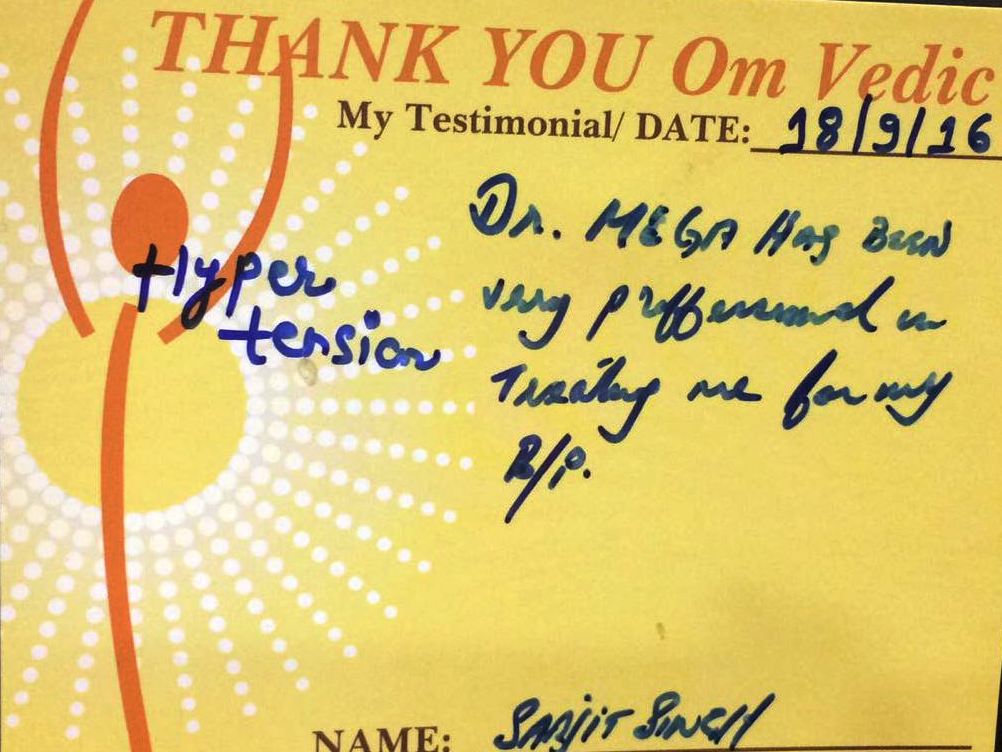 THANK YOU Om Vedic
My Testimonial/ DATE: 18/9/16
Hyper
tension
Dr. MEGA Has Been
very proffessional in
Treating me for my
B/P.
NAME: SARJIT SINGH